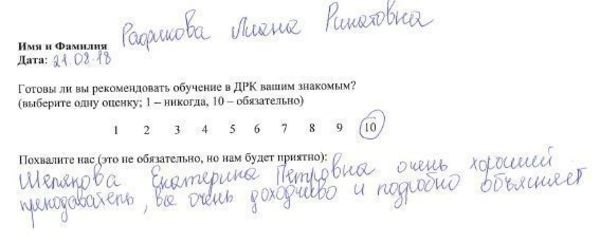 Имя и Фамилия Рафикова Лиана Ринатовна
Дата: 21.08.18
Готовы ли вы рекомендовать обучение в ДРК вашим знакомым?
(выберите одну оценку; 1 – никогда, 10 – обязательно)
1 2 3 4 5 6 7 8 9 10
Похвалите нас (это не обязательно, но нам будет приятно):
Екатерина Петровна очень хороший
преподаватель, все очень доходчиво и подробно объясняет